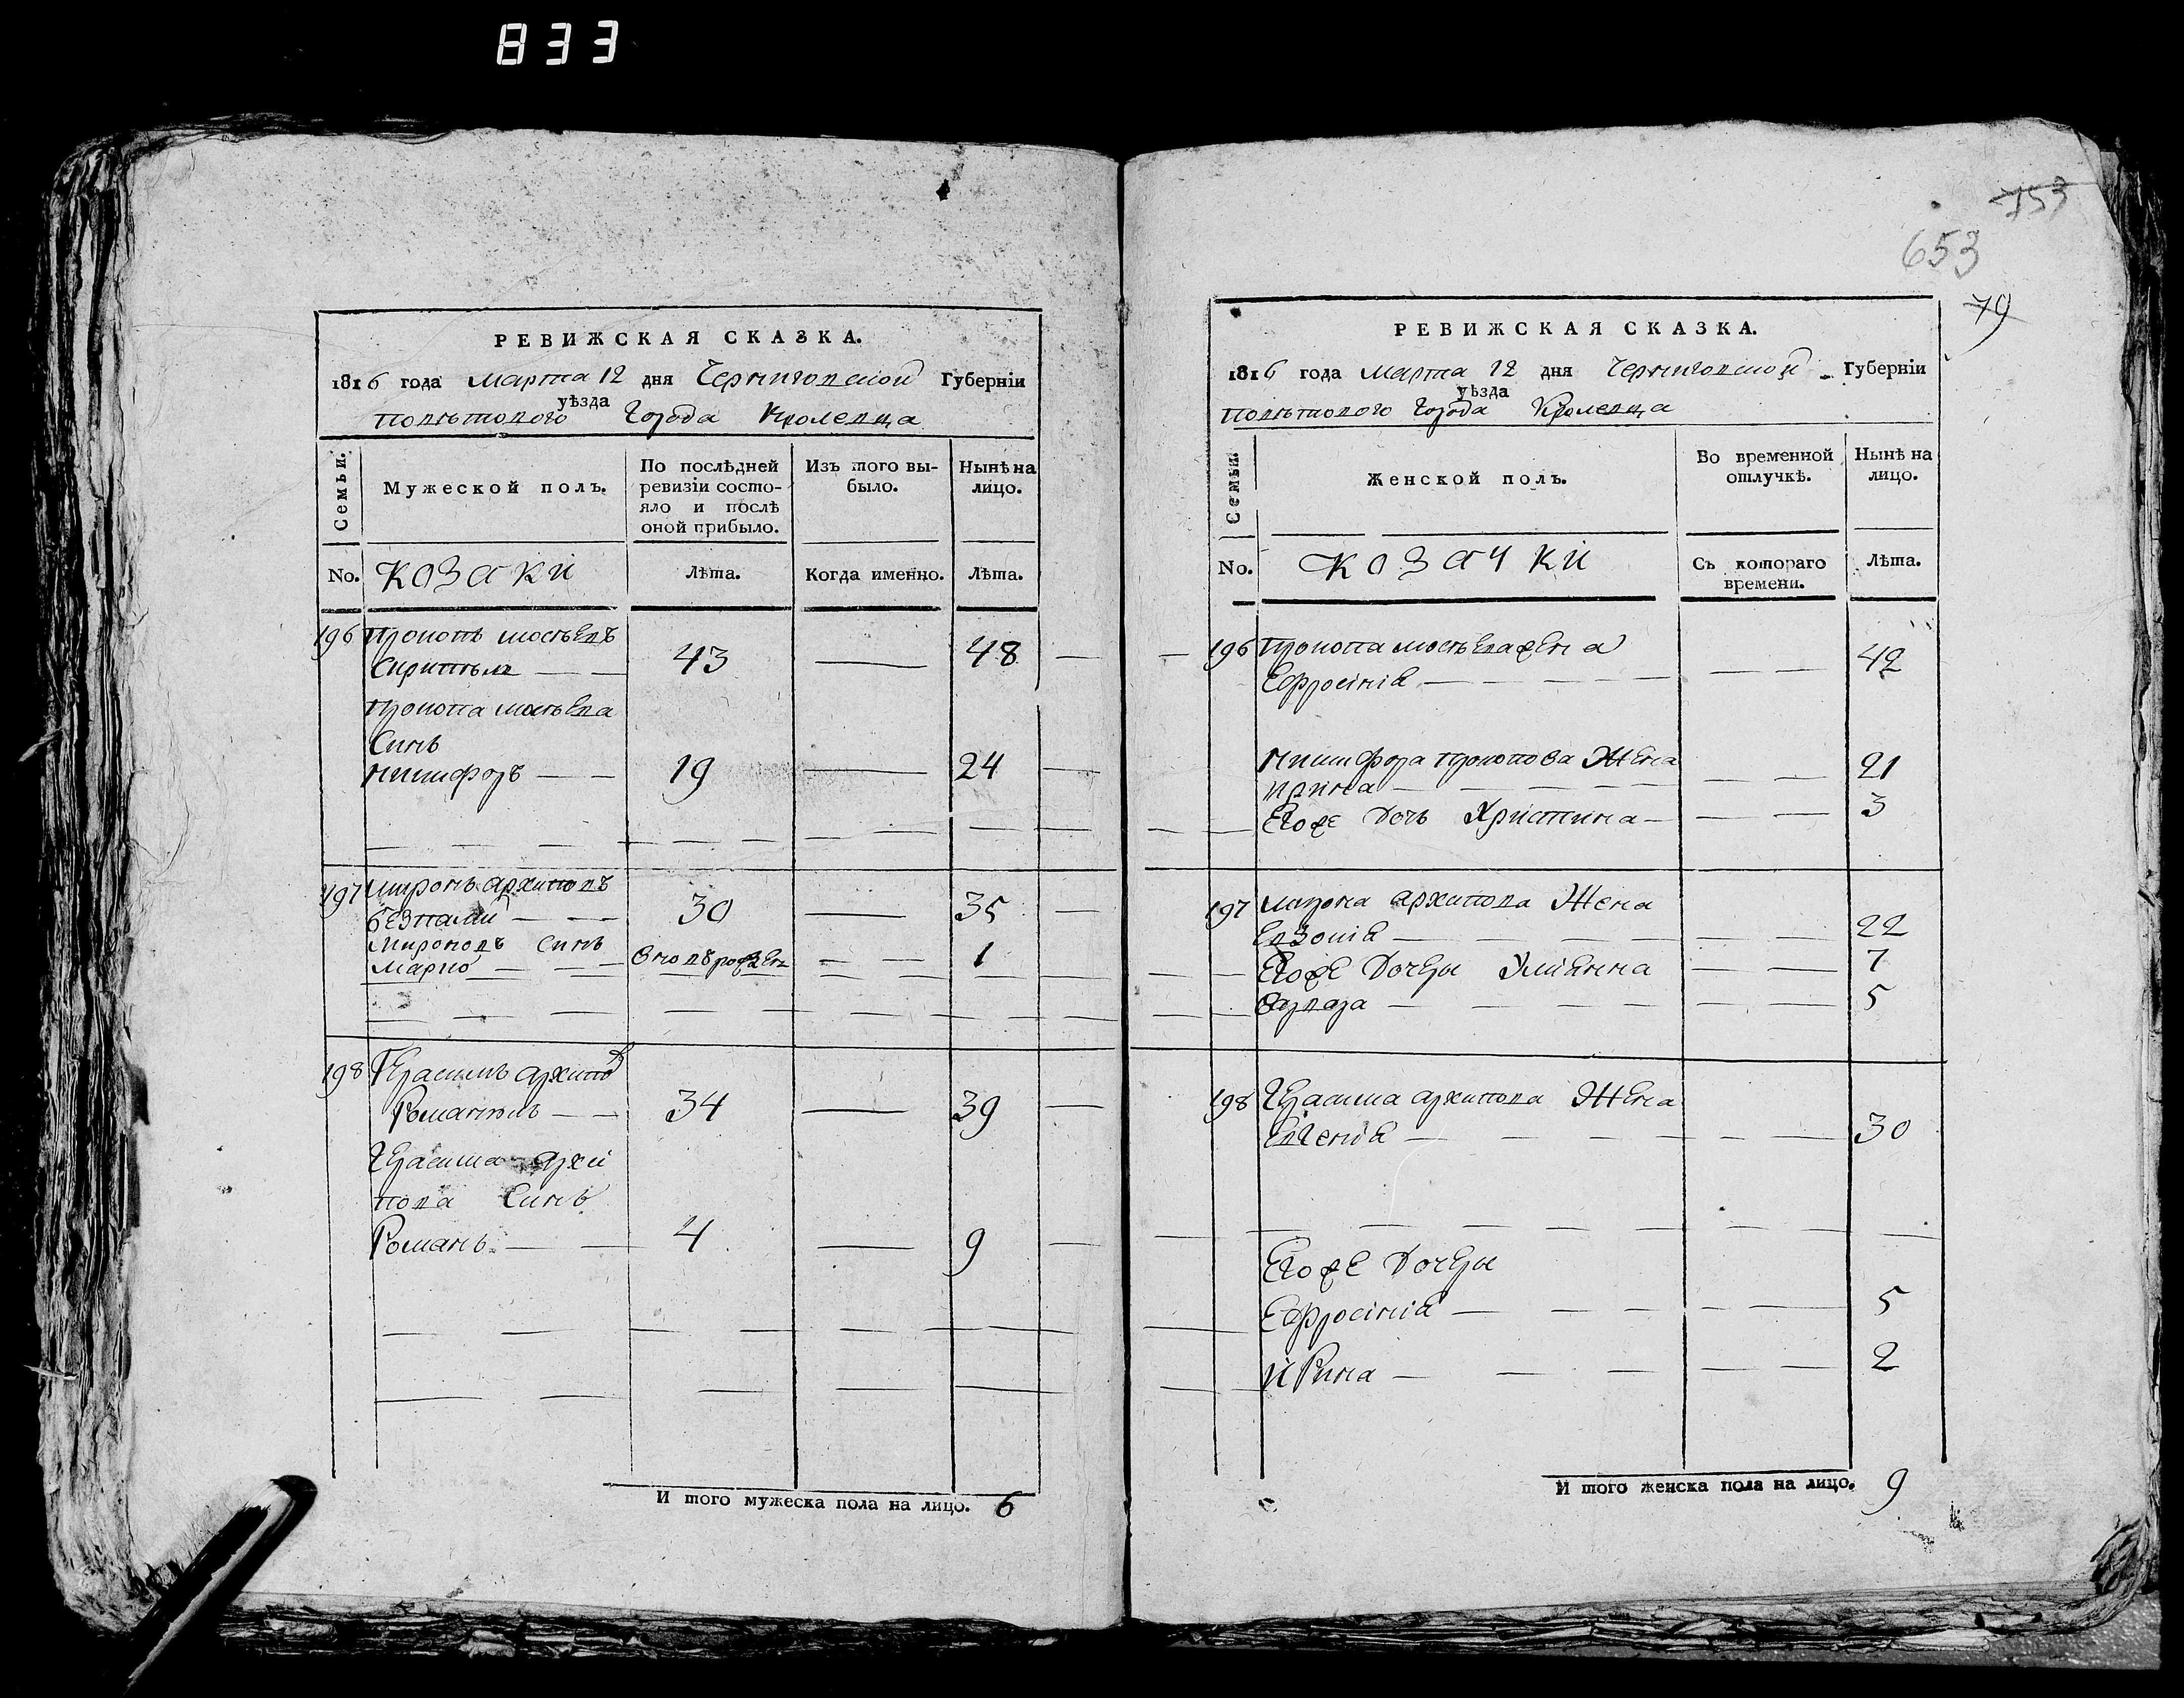 833
РЕВИЖСКАЯ СКАЗКА.
1816 года Марта 12 дня Черниговской Губерніи
уѣзда
Поветового Города Кролевца
Семьи.
Мужеской полъ.
По послѣдней ревизіи состояло и послѣ оной прибыло.
Изъ того выбыло.
Нынѣ на лицо.
No.
козаки
Лѣта.
Когда именно.
Лѣта.
196 Прокопъ
43 48
Прокопа
Синъ
Никифоръ 19 24
197 Миронъ архиповъ
30 35
Мироновъ Синъ
Марко 1
198 Герасимъ архипов
34 39
Герасима архи
пова Синъ
Романъ 4 9
И того мужеска пола на лицо. 6
753
653
79
РЕВИЖСКАЯ СКАЗКА.
1816 года Марта 12 дня Черниговской Губерніи
уѣзда
Поветового Города Кролевца
Семьи.
Женской полъ.
Во временной отлучкѣ.
Нынѣ на лицо.
No.
козачки
Съ котораго времени.
Лѣта.
196 Прокопа
Ефросінія 42
Никифора Прокопова Жена
ирина 21
Егоже Дочь Христина 3
197 Мирона архипова Жена
Евдокія 22
Егоже Дочеры Уліянна 7
Варвара 5
198 Герасима архипова Жена
Евгенія 30
Егоже Дочеры
Ефросінія 5
ирина 2
И того женска пола на лицо. 9